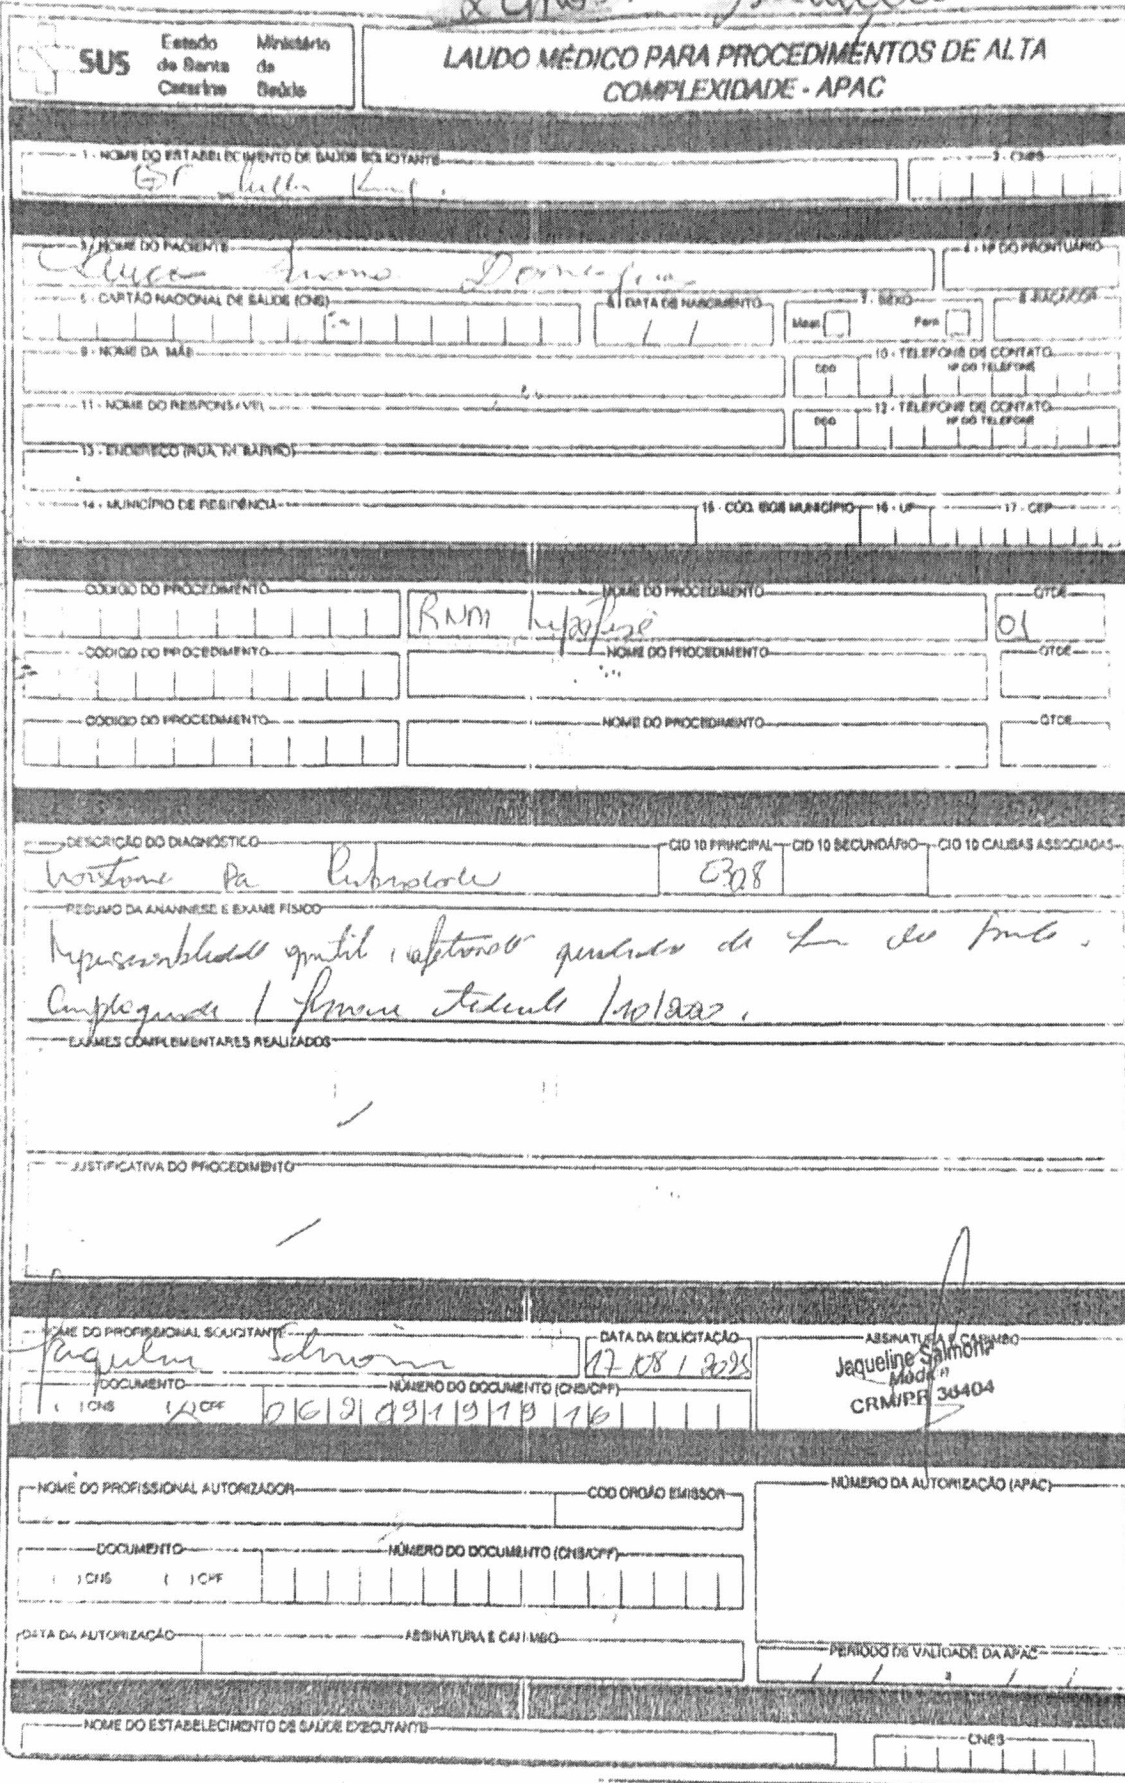 SUS
Estado de Santa Catarina
Ministério da Saúde
LAUDO MÉDICO PARA PROCEDIMENTOS DE ALTA
COMPLEXIDADE - APAC
1 - NOME DO ESTABELECIMENTO DE SAÚDE SOLICITANTE
2 - CNES
3 - NOME DO PACIENTE
4 - Nº DO PRONTUÁRIO
5 - CARTÃO NACIONAL DE SAÚDE (CNS)
6 - DATA DE NASCIMENTO
7 - SEXO
8 - RAÇA/COR
/ /
Masc. Fem.
9 - NOME DA MÃE
10 - TELEFONE DE CONTATO
DDD Nº DO TELEFONE
11 - NOME DO RESPONSÁVEL
12 - TELEFONE DE CONTATO
DDD Nº DO TELEFONE
13 - ENDEREÇO (RUA, Nº, BAIRRO)
14 - MUNICÍPIO DE RESIDÊNCIA
15 - CÓD. IBGE MUNICÍPIO
16 - UF
17 - CEP
CÓDIGO DO PROCEDIMENTO
NOME DO PROCEDIMENTO
QTDE
RNM hipófise
01
CÓDIGO DO PROCEDIMENTO
NOME DO PROCEDIMENTO
QTDE
CÓDIGO DO PROCEDIMENTO
NOME DO PROCEDIMENTO
QTDE
DESCRIÇÃO DO DIAGNÓSTICO
CID 10 PRINCIPAL
CID 10 SECUNDÁRIO
CID 10 CAUSAS ASSOCIADAS
Puberdade
E308
RESUMO DA ANAMNESE E EXAME FÍSICO
EXAMES COMPLEMENTARES REALIZADOS
JUSTIFICATIVA DO PROCEDIMENTO
NOME DO PROFISSIONAL SOLICITANTE
DATA DA SOLICITAÇÃO
ASSINATURA E CARIMBO
Jaqueline Salmoria
17 / 08 /
Jaqueline Salmoria
CRM/PR 36404
DOCUMENTO
NÚMERO DO DOCUMENTO (CNS/CPF)
( ) CNS (X) CPF
06209191916
NOME DO PROFISSIONAL AUTORIZADOR
COD ORGÃO EMISSOR
NÚMERO DA AUTORIZAÇÃO (APAC)
DOCUMENTO
NÚMERO DO DOCUMENTO (CNS/CPF)
( ) CNS ( ) CPF
DATA DA AUTORIZAÇÃO
ASSINATURA E CARIMBO
PERÍODO DE VALIDADE DA APAC
/ / a / /
NOME DO ESTABELECIMENTO DE SAÚDE EXECUTANTE
CNES